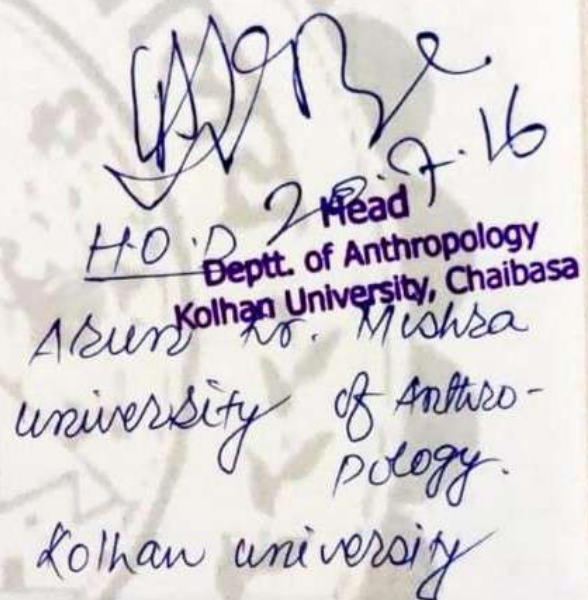 7.16
H.O.D
Head
Deptt. of Anthropology
Kolhan University, Chaibasa
Arun Kr. Mishra
university of Anthro-
pology.
Kolhan university